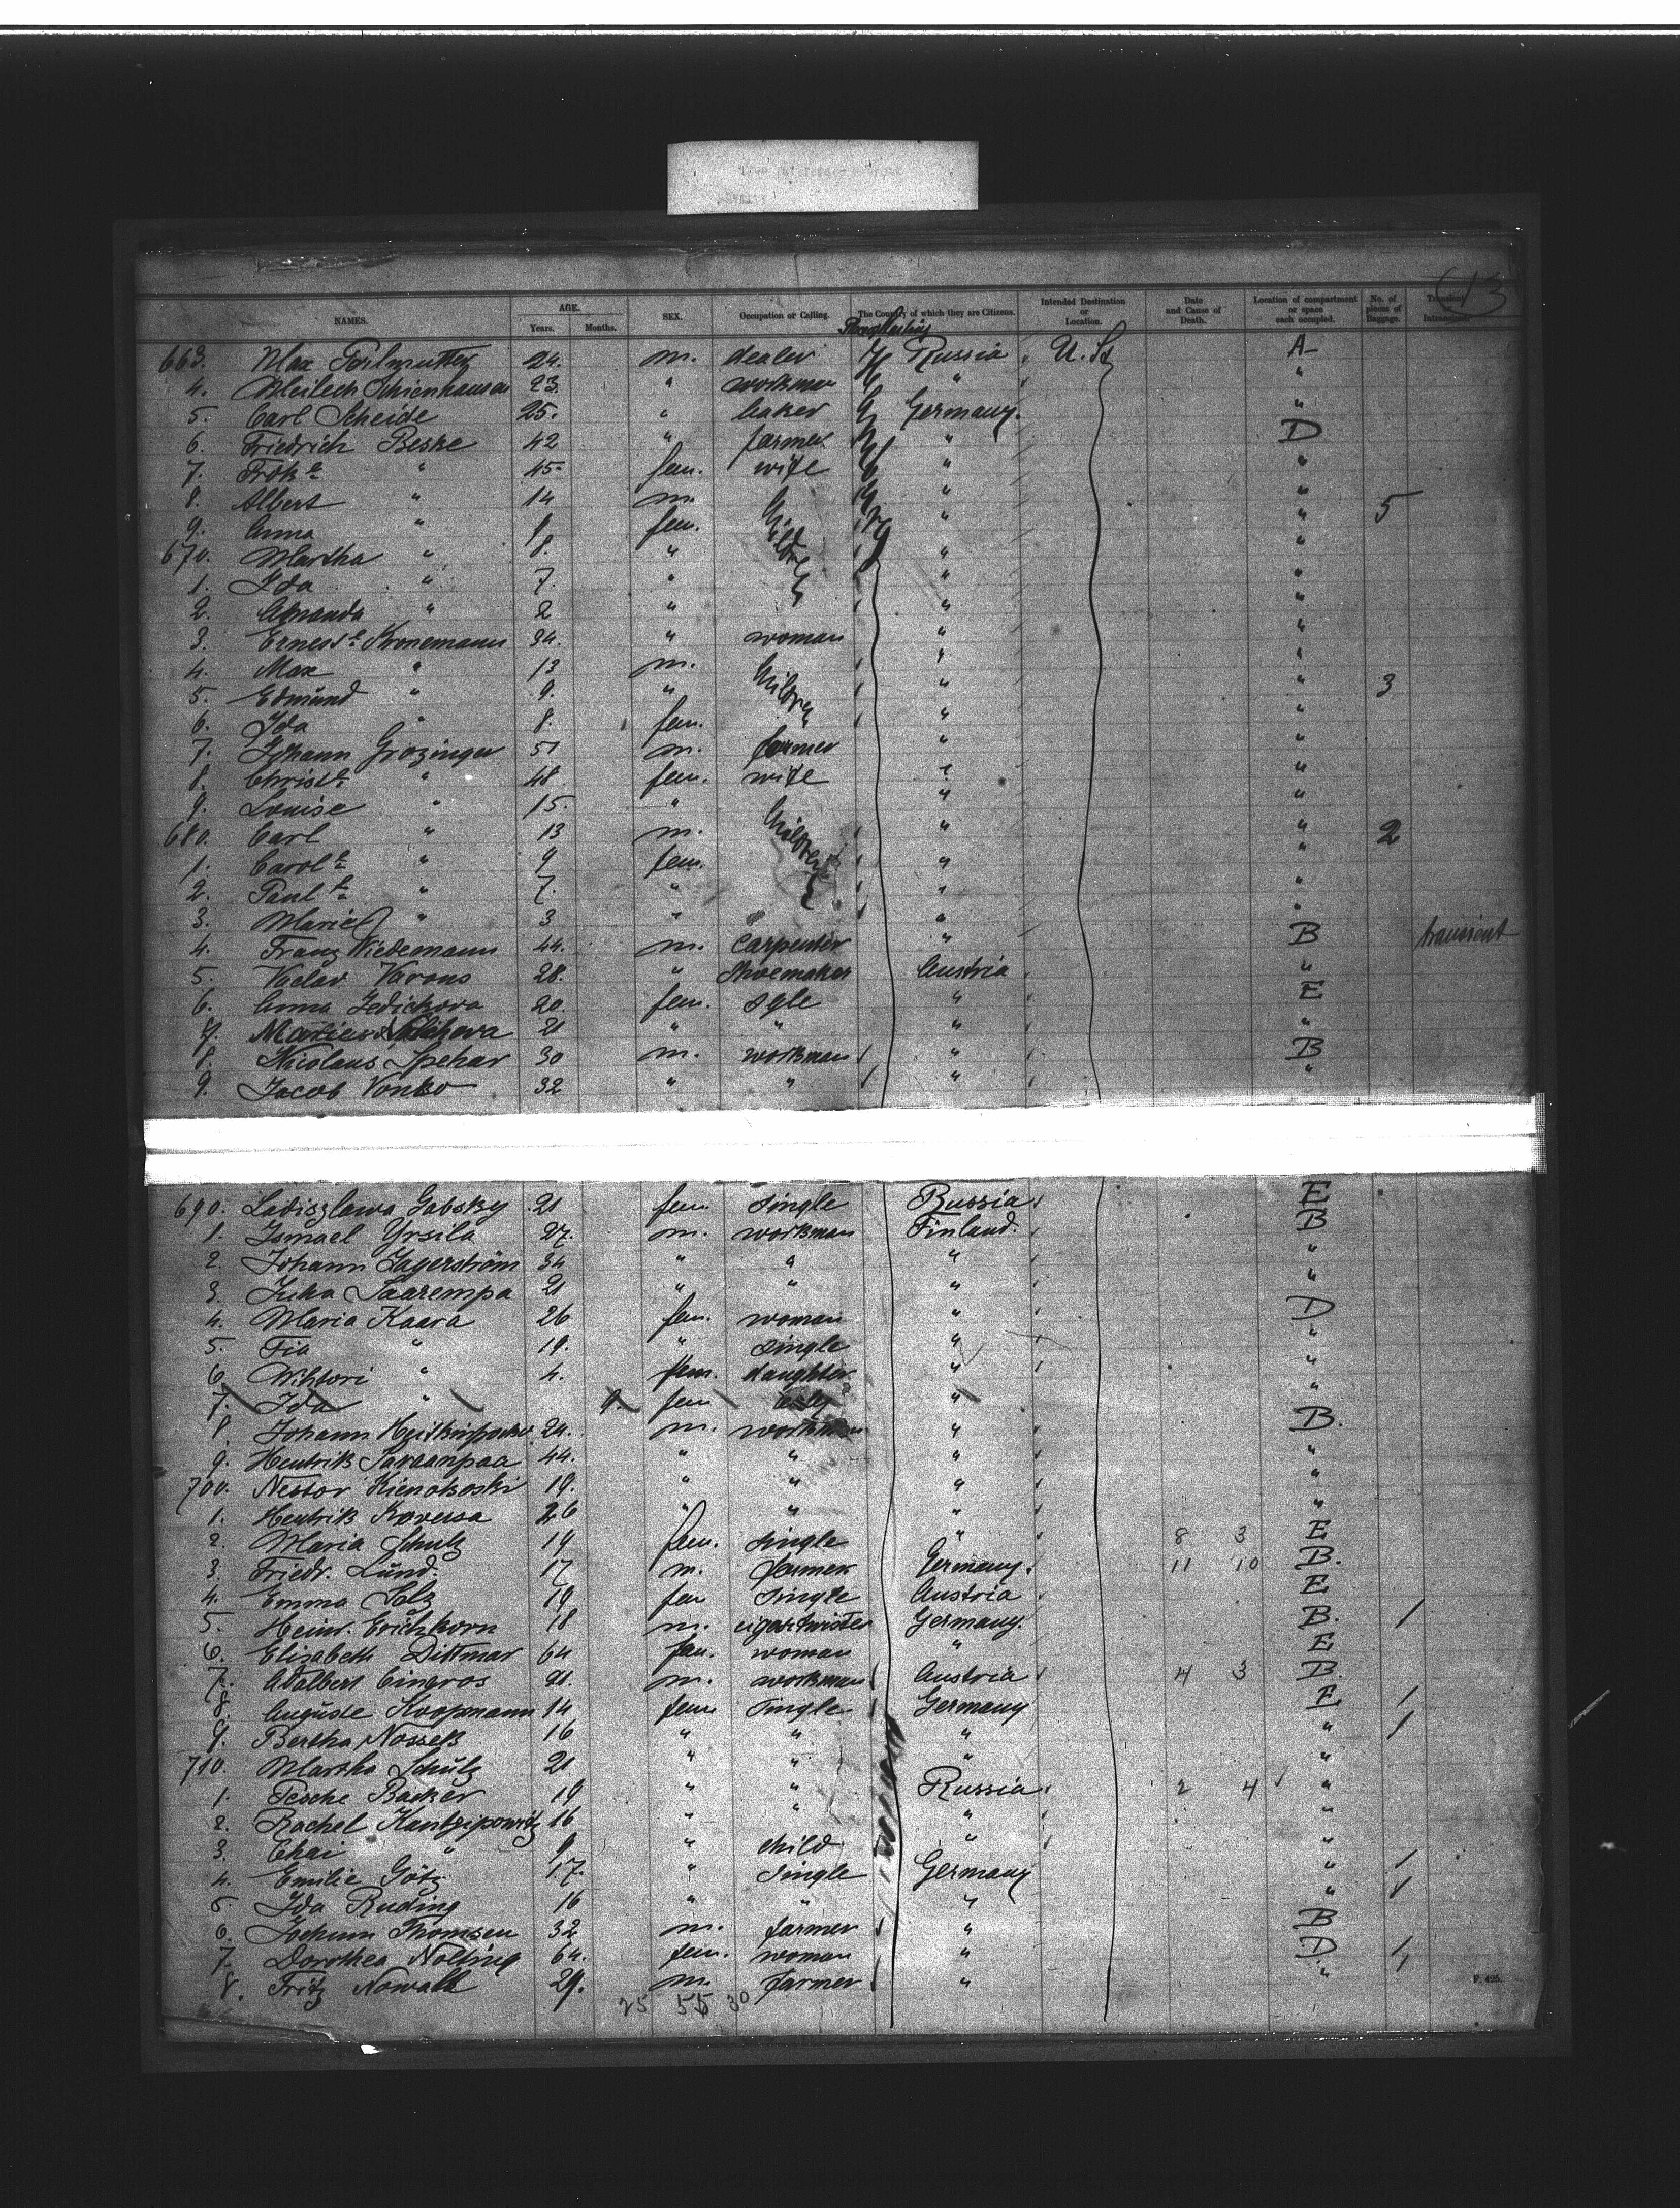 13
NAMES. AGE. Years. Months. SEX. Occupation or Calling. The Country of which they are Citizens. Intended Destination or Location. Date and Cause of Death. Location of compartment or space each occupied. No. of pieces of Baggage.
663. Max 24. m. dealer Russia U. St A
4. Meilech 23. " workman " "
5. Carl Scheide 25. " baker Germany. "
6. Friedrich Beske 42 " farmer " D
7. " 45 fem. wife " "
8. Albert " 14 m. " " 5
9. Anna " 9 fem. Children " "
670. Martha " 8. " " "
1. Ida " 7. " " "
2. Amanda " 2 " " "
3. Ernestе Kronemann 34. " woman " "
4. Max " 13 m. " "
5. Edmund " 9. " Children " " 3
6. Ida " 8. fem. " "
7. Johann Grözinger 51 m. farmer " "
8. Christe " 48 fem. wife " "
9. Louise " 15. " " "
680. Carl " 13 m. Children " " 2
1. Carole " 9 fem. " "
2. Paule " 7. " " "
3. Marie " 3 " " "
4. Franz Wiedemann 44. m. carpenter " B transient
5. Vaclav Varous 28. " shoemaker Austria "
6. Anna Jedichova 20. fem. sgle " E
7. 21 " " " "
8. Nicolaus Spehar 30 m. workman " B
9. Jacob Vonko 32 " " " "
690. Ladiszlawa Gabsky 21 fem single Russia E
1. Ismael Yrsila 27. m. workman Finland. B
2. Johann Lagerström 34 " " " "
3. Juka Saarempa 21 " " " "
4. Maria Kaara 26 fem. woman " D
5. Fia " 19. " single " "
6. Wihtori " 4. fem. daughter " "
7. Ida " 9. fem " "
8. Johann 24. m. workman " B.
9. Hendrik Savaanpaa 44. " " " "
700. Nestor 19. " " " "
1. Hendrik Kovessa 26 " " " "
2. Maria Schulz 19 fem. single " 8 3 E
3. Friedr. Lund. 17 m. farmer Germany. 11 10 B.
4. Emma Salz 19 fem single Austria E
5. Heinr. Erichkorn 18 m. Germany. B. 1
6. Elisabeth Dittmar 64 fem. woman " E
7. Adalbert Cingros 21. m. workman Austria 4 3 B.
8. Auguste Koopmann 14 fem single Germany E 1
9. Bertha Nosseck 16 " " " " 1
710. Martha Schulz 21 " " " "
1. Pesche Backer 19 " " Russia 2 4 "
2. Rachel 16 " " " "
3. Chai " 9 " child " "
4. Emilie Götz 17. " single Germany " 1
5. Ida Ruding 16 " " " " 1
6. Jochum Thomsen 32 m. farmer " B
7. Dorothea Nolting 64. fem. woman " D 1
8. Fritz Nowack 29. m. farmer " "
25 55 30
F. 425.